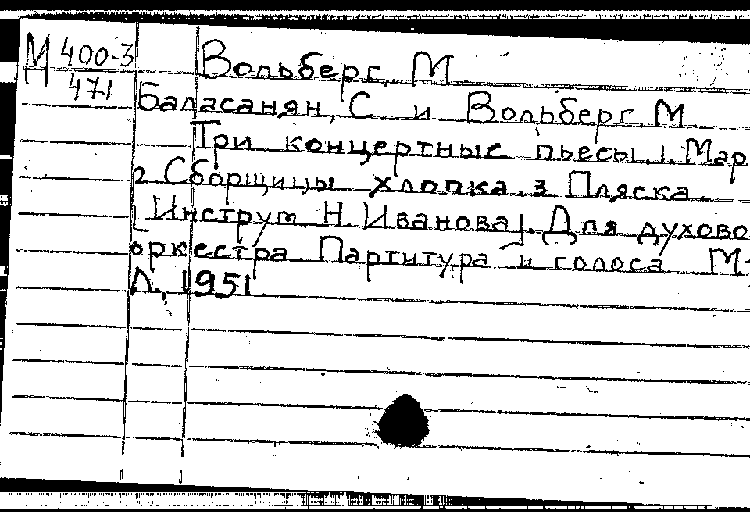 М 400-3
471
Вольберг, М
Баласанян, С и Вольберг М
Три концертные пьесы. 1. Мар
2. Сборщицы хлопка. 3 Пляска.
[Инструм Н. Иванова]. Для духово
оркестра Партитура и голоса М.
Л., 1951